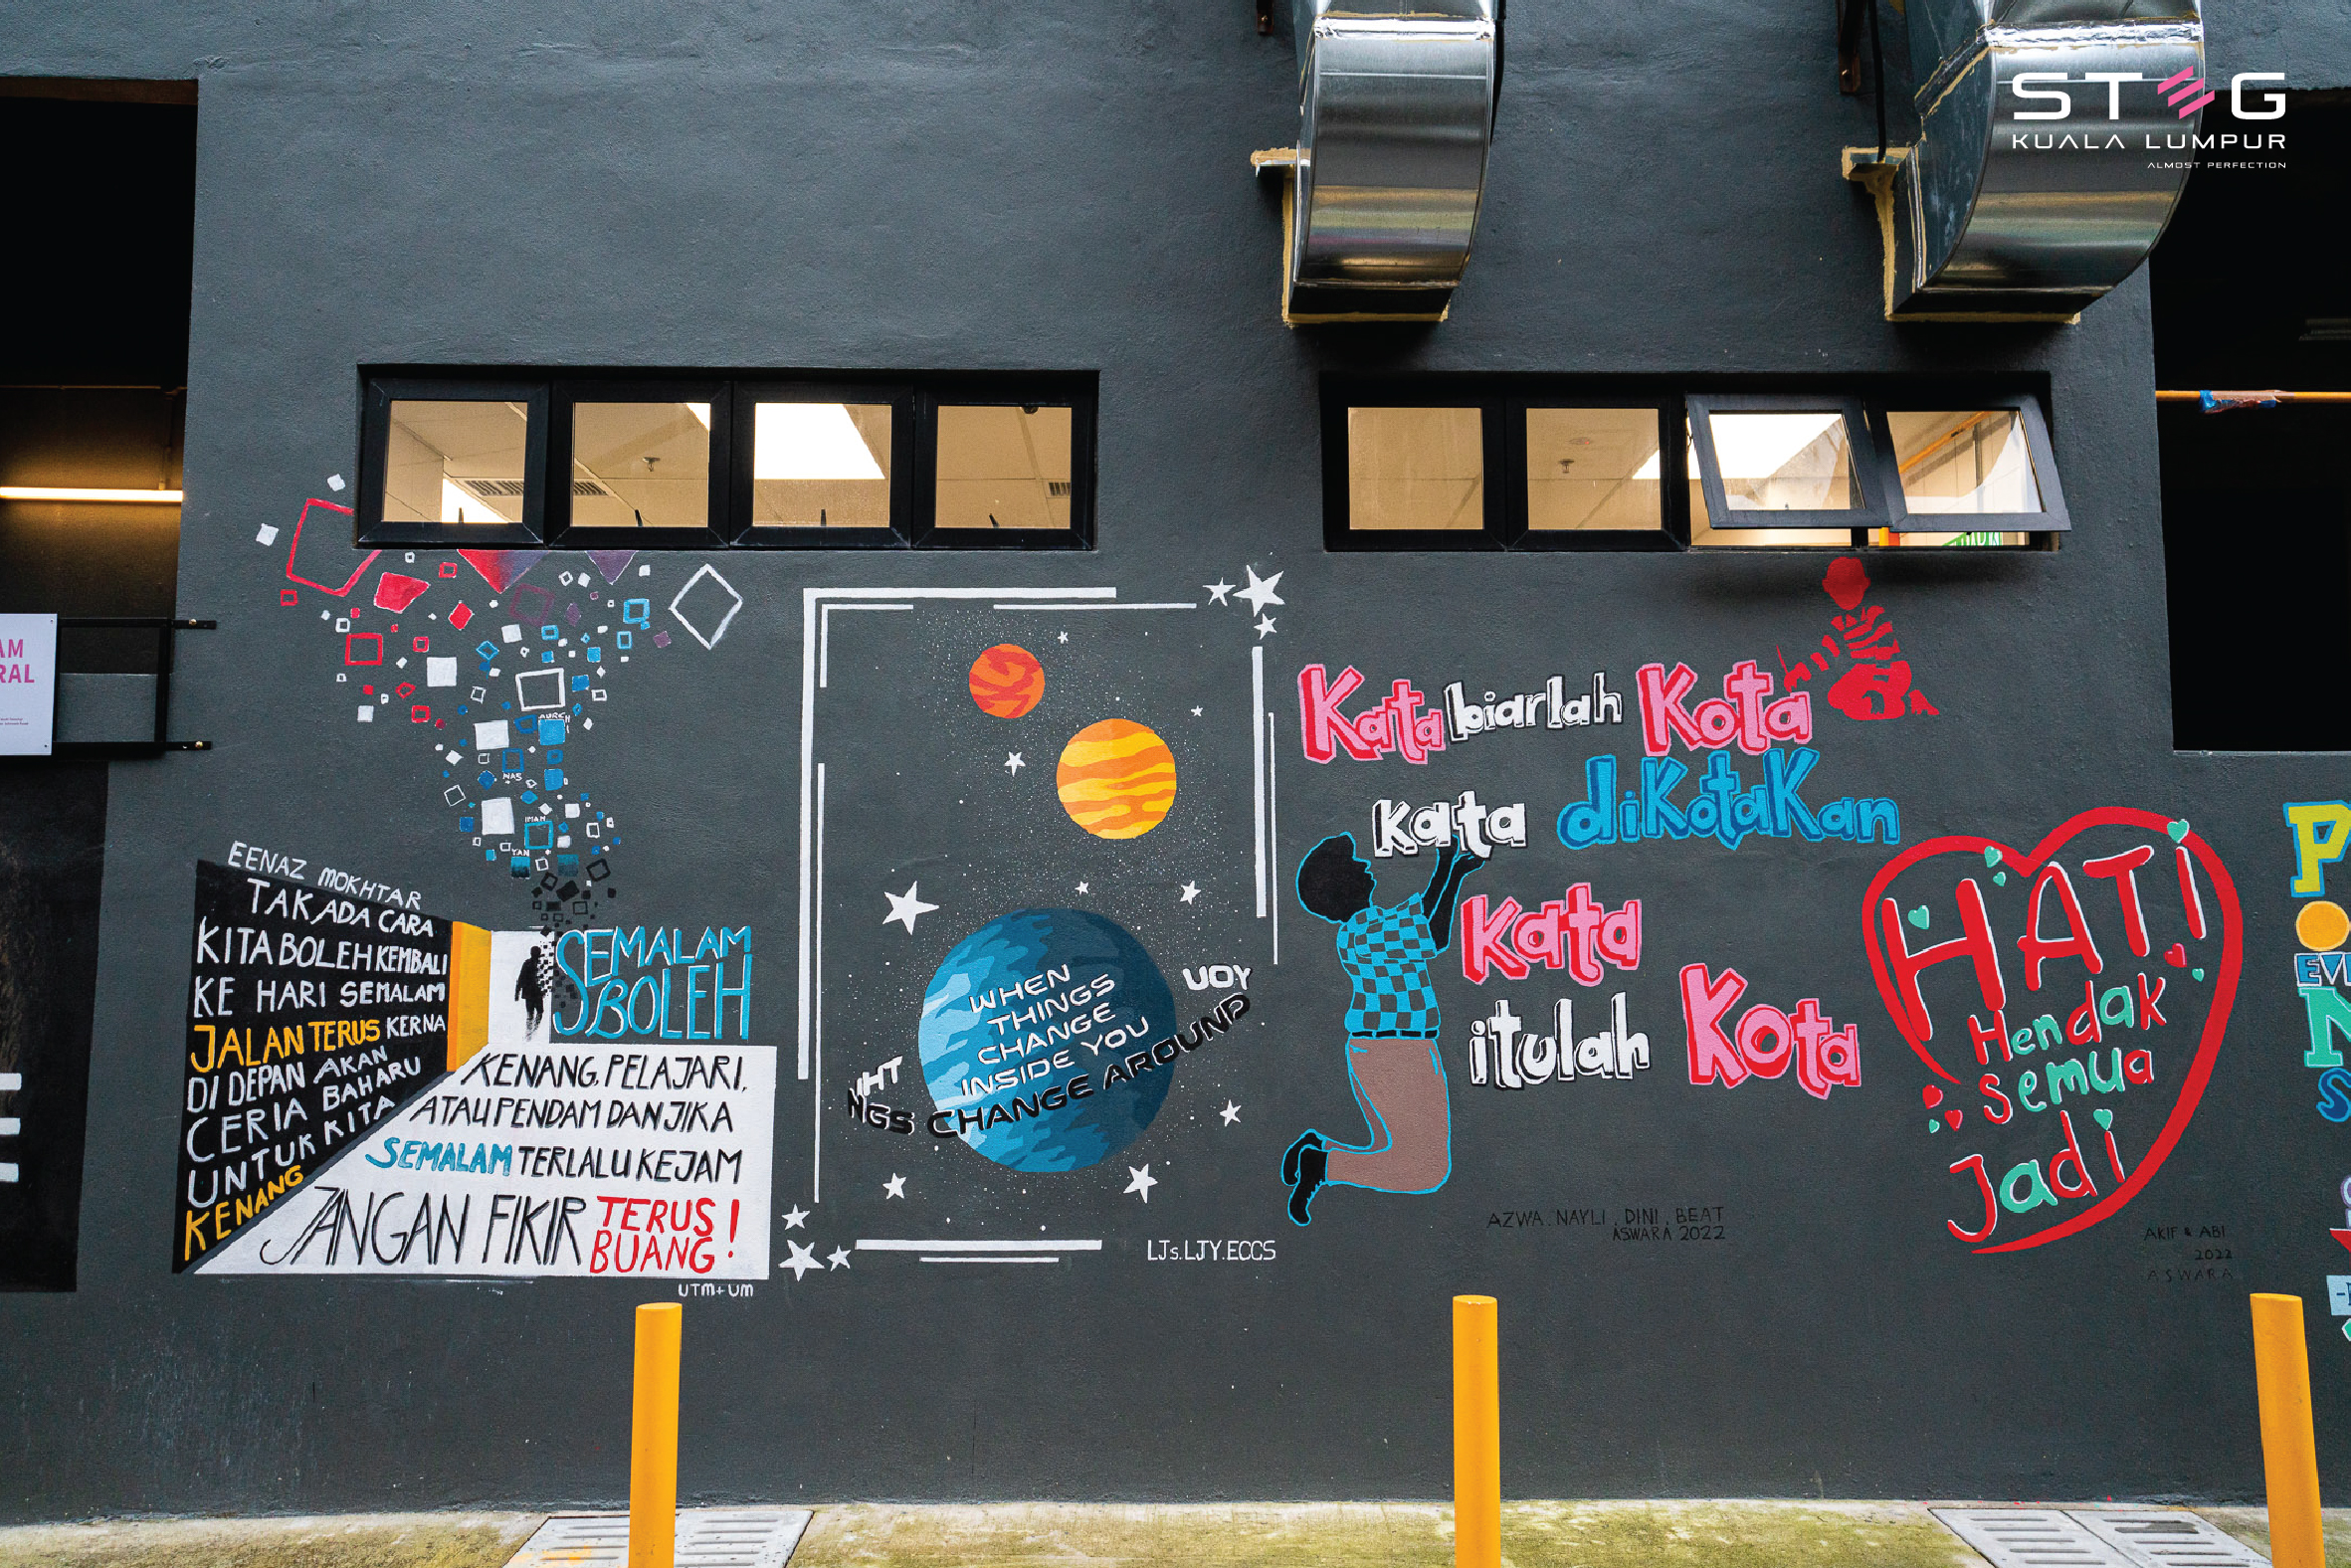 STEG
KUALA LUMPUR
ALMOST PERFECTION
AM
RAL
EENAZ MOKHTAR
TAK ADA CARA
KITA BOLEH KEMBALI
KE HARI SEMALAM
JALAN TERUS KERNA
DI DEPAN AKAN
CERIA BAHARU
UNTUK KITA
KENANG
SEMALAM
BOLEH
KENANG, PELAJARI,
ATAU PENDAM DAN JIKA
SEMALAM TERLALU KEJAM
JANGAN FIKIR TERUS
BUANG!
UTM+UM
NAS
IMAN
YAN
WHEN
THINGS
CHANGE
INSIDE YOU
NGS CHANGE AROUND
UOY
IHT
LJs.LJY.ECCS
Kata biarlah Kota
kata dikotakan
Kata
itulah Kota
AZWA.NAYLI.DINI.BEAT
ASWARA 2022
HATI
Hendak
semua
Jadi
AKIF & ABI
2022
ASWARA